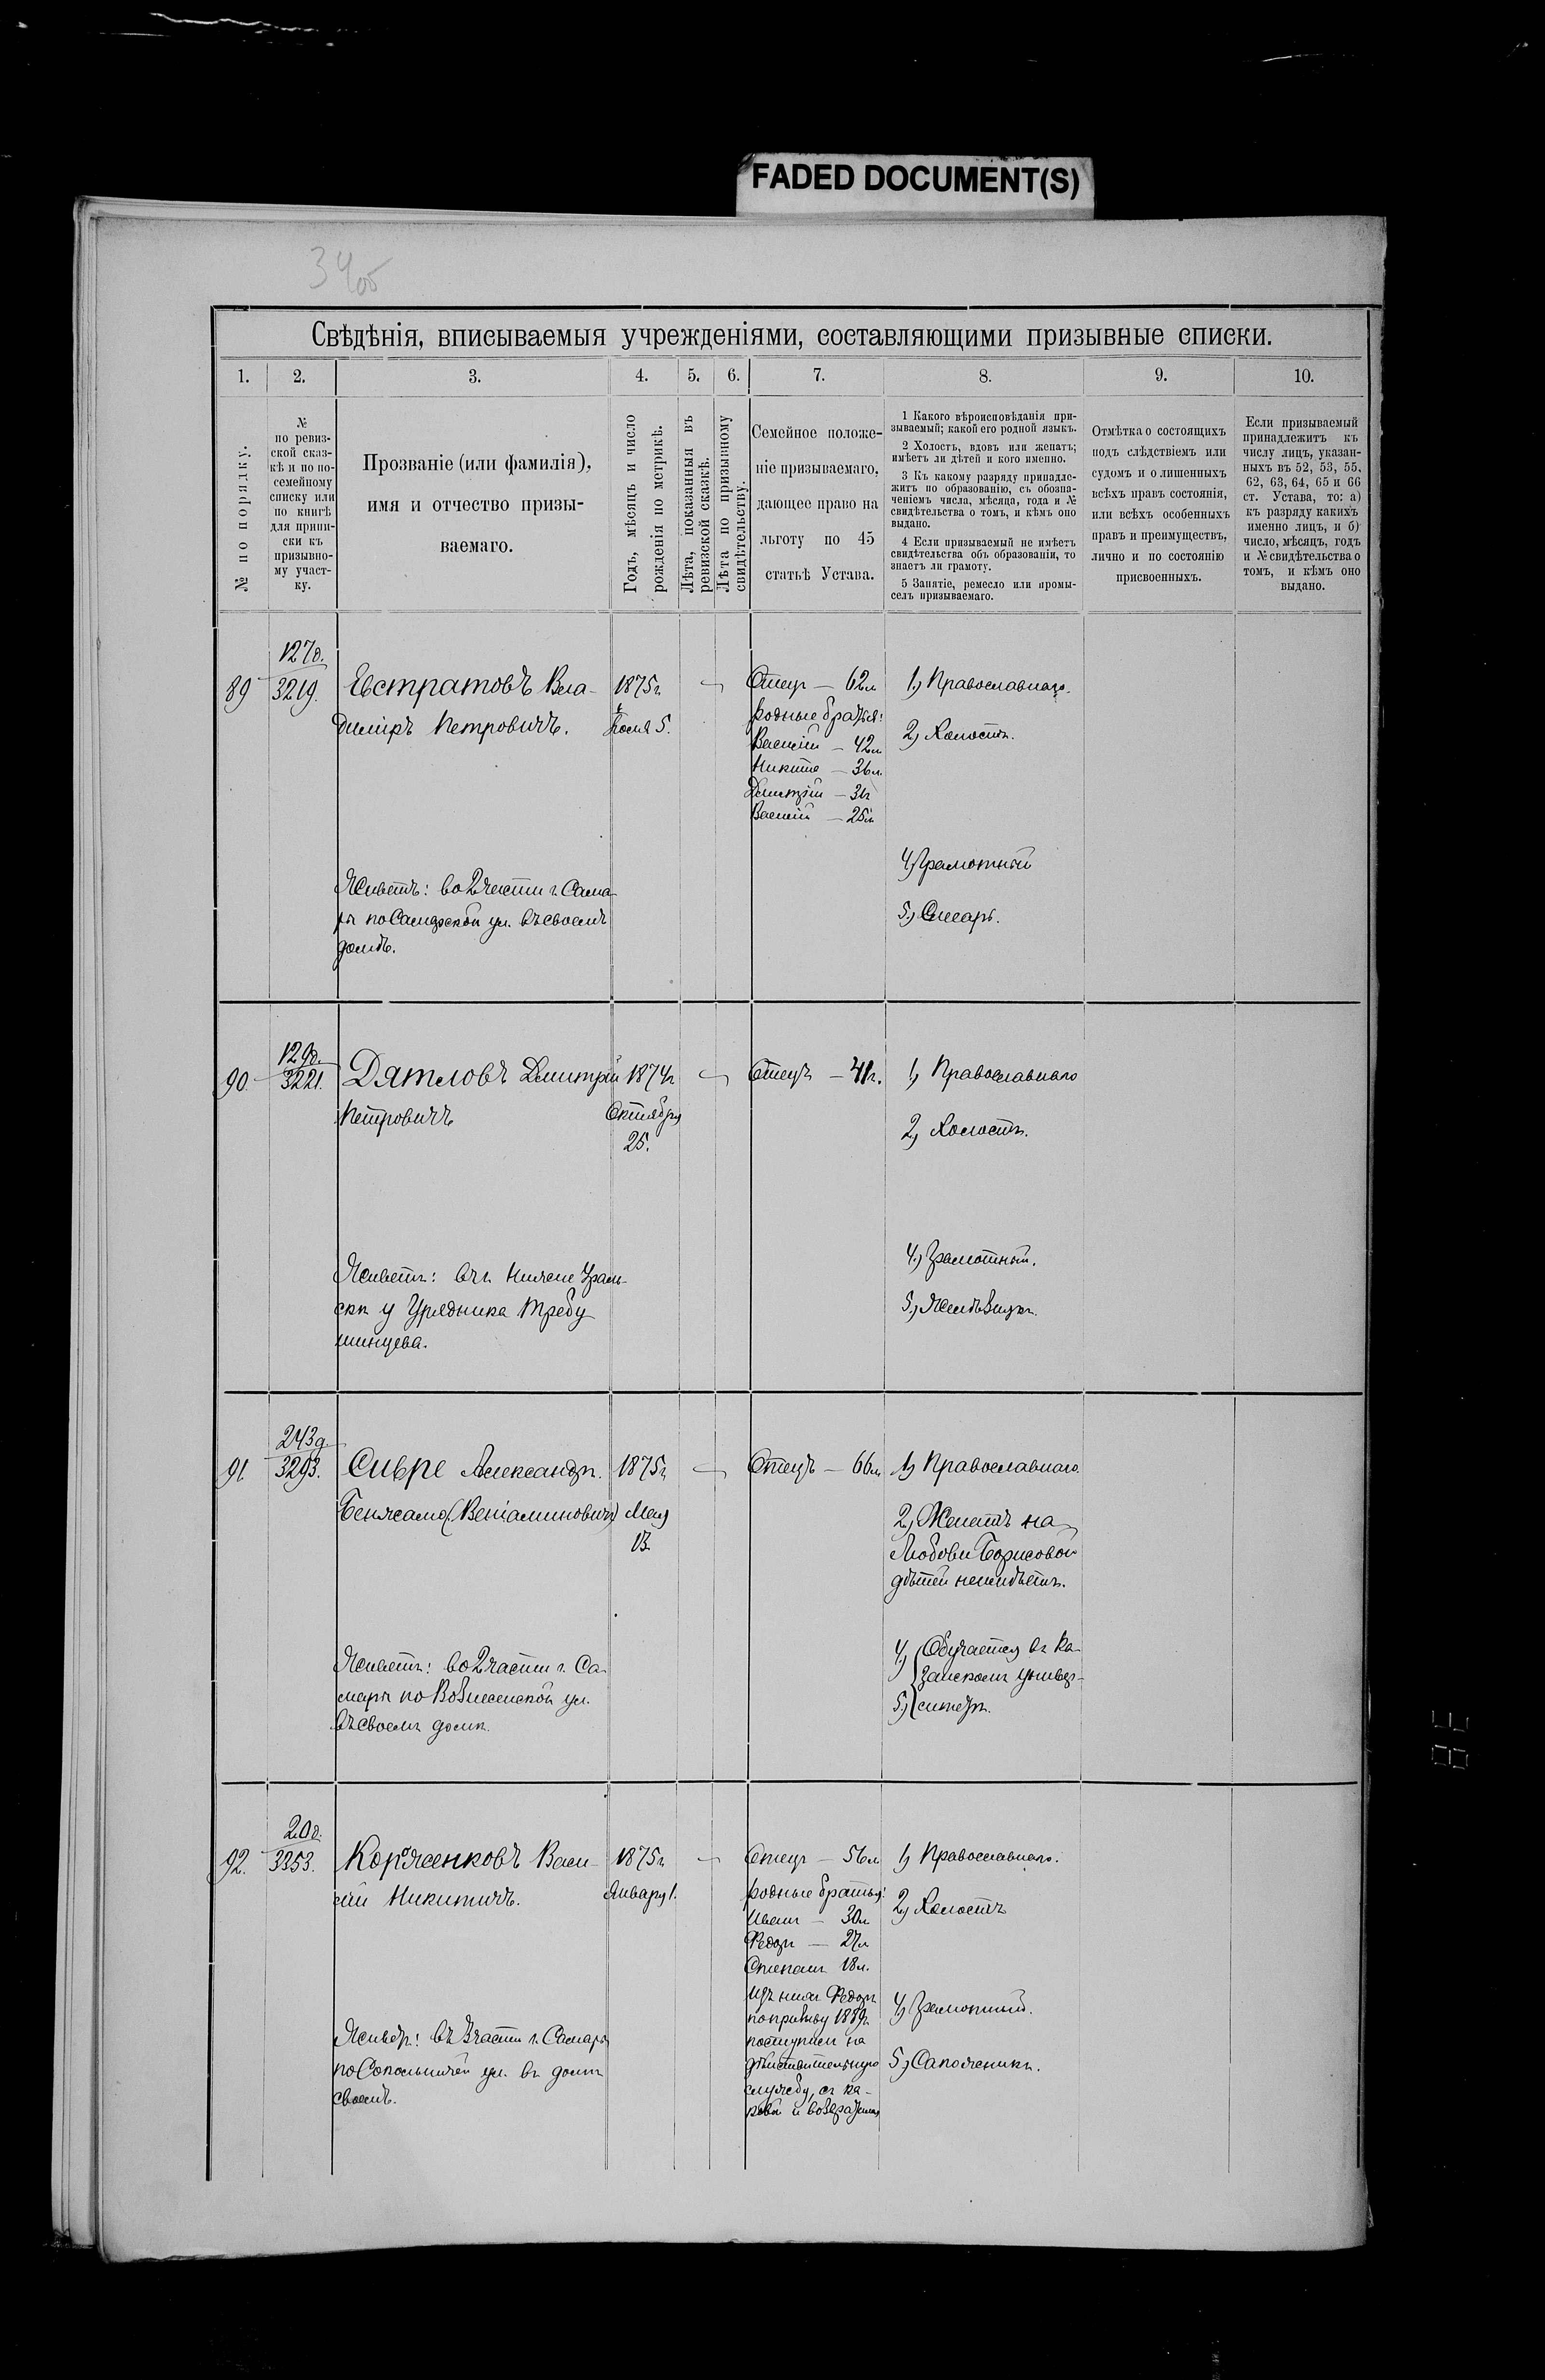 FADED DOCUMENT(S)
34об
Свѣдѣнія, вписываемыя учрежденіями, составляющими призывные списки.
1. 2. 3. 4. 5. 6. 7. 8. 9. 10.
№ по порядку.
№
по ревиз-
ской сказ-
кѣ и по по-
семейному
списку или
по книгѣ
для припи-
ски къ
призывно-
му участ-
ку.
Прозваніе (или фамилія),
имя и отчество призы-
ваемаго.
Годъ, мѣсяцъ и число
рожденія по метрикѣ.
Лѣта, показанныя въ
ревизской сказкѣ.
Лѣта по призывному
свидѣтельству.
Семейное положе-
ніе призываемаго,
дающее право на
льготу по 45
статьѣ Устава.
1 Какого вѣроисповѣданія при-
зываемый; какой его родной языкъ.
2 Холостъ, вдовъ или женатъ;
имѣетъ ли дѣтей и кого именно.
3 Къ какому разряду принадле-
житъ по образованію, съ обозна-
ченіемъ числа, мѣсяца, года и №
свидѣтельства о томъ, и кѣмъ оно
выдано.
4 Если призываемый не имѣетъ
свидѣтельства объ образованіи, то
знаетъ ли грамоту.
5 Занятіе, ремесло или промы-
селъ призываемаго.
Отмѣтка о состоящихъ
подъ слѣдствіемъ или
судомъ и о лишенныхъ
всѣхъ правъ состоянія,
или всѣхъ особенныхъ
правъ и преимуществъ,
лично и по состоянію
присвоенныхъ.
Если призываемый
принадлежитъ къ
числу лицъ, указан-
ныхъ въ 52, 53, 55,
62, 63, 64, 65 и 66
ст. Устава, то: а)
къ разряду какихъ
именно лицъ, и б)
число, мѣсяцъ, годъ
и № свидѣтельства о
томъ, и кѣмъ оно
выдано.
89
127д.
3219.
Евстратовъ Вла-
диміръ Петровичъ.
1875г.
Іюля 5.
Отецъ — 62л
родные братья:
Василій — 42л
Никита — 36л.
Дмитрій — 31г
Василій — 25л
1) Православнаго.
2) Холостъ.
4) Грамотный
5) Слесарь.
Живетъ: во 2 части г. Сама-
ры по Самарской ул. въ своемъ
домѣ.
90
129д.
3221.
Дятловъ Дмитрій
Петровичъ
1874г
Октября
25.
Отецъ — 41г.
1) Православнаго
2) Холостъ.
4) Грамотный.
Живетъ: въ
у Урядника Требу
шинцева.
91
243д
3293.
Сивре Александръ
Бенжамо (Веніаминовичъ)
1875г.
Мая
13.
Отецъ — 66л
1) Православнаго.
2) Женатъ на
Любови Борисовой
дѣтей не имѣетъ.
4) Обучается въ Ка-
занскомъ универ-
5) ситетѣ.
Живетъ: во 2 части г. Са-
мары по Вознесенской ул.
въ своемъ домѣ.
92.
20г.
3353.
Корженковъ Васи-
лій Никитичъ.
1875г.
Января 1.
Отецъ — 56л
родные братья:
Иванъ — 30л
Федоръ — 27л
Степанъ 18л.
Изъ нихъ Федоръ
по призыву 1889г.
поступилъ на
дѣйствительную
службу, съ ка-
ковой и возвратился
1) Православнаго.
2) Холостъ
4) Грамотный.
5) Сапожникъ.
Живетъ: въ 3 части г. Самары
по Сокольничей ул. въ домѣ
своемъ.